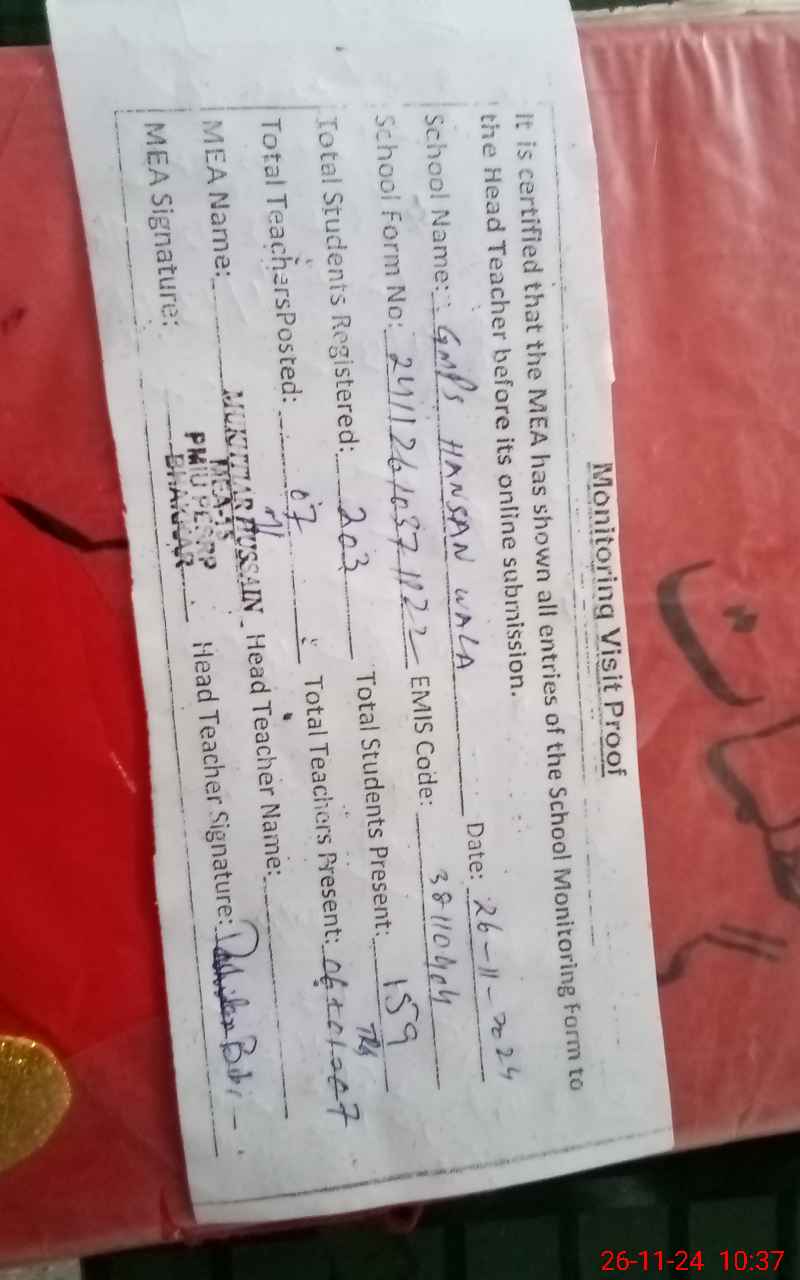 Monitoring Visit Proof
It is certified that the MEA has shown all entries of the School Monitoring Form to
the Head Teacher before its online submission.
School Name: GMPS HANSAN WALA Date: 26-11-2024
School Form No: EMIS Code: 38110404
Total Students Registered: 203 Total Students Present: 159
Total Teachers Posted: 07 Total Teachers Present: 06+01=07
MEA Name: MUKHTIAR HUSSAIN Head Teacher Name:
MEA Signature: PMIU PESRP Head Teacher Signature: Bibi
BHAKKAR
26-11-24 10:37